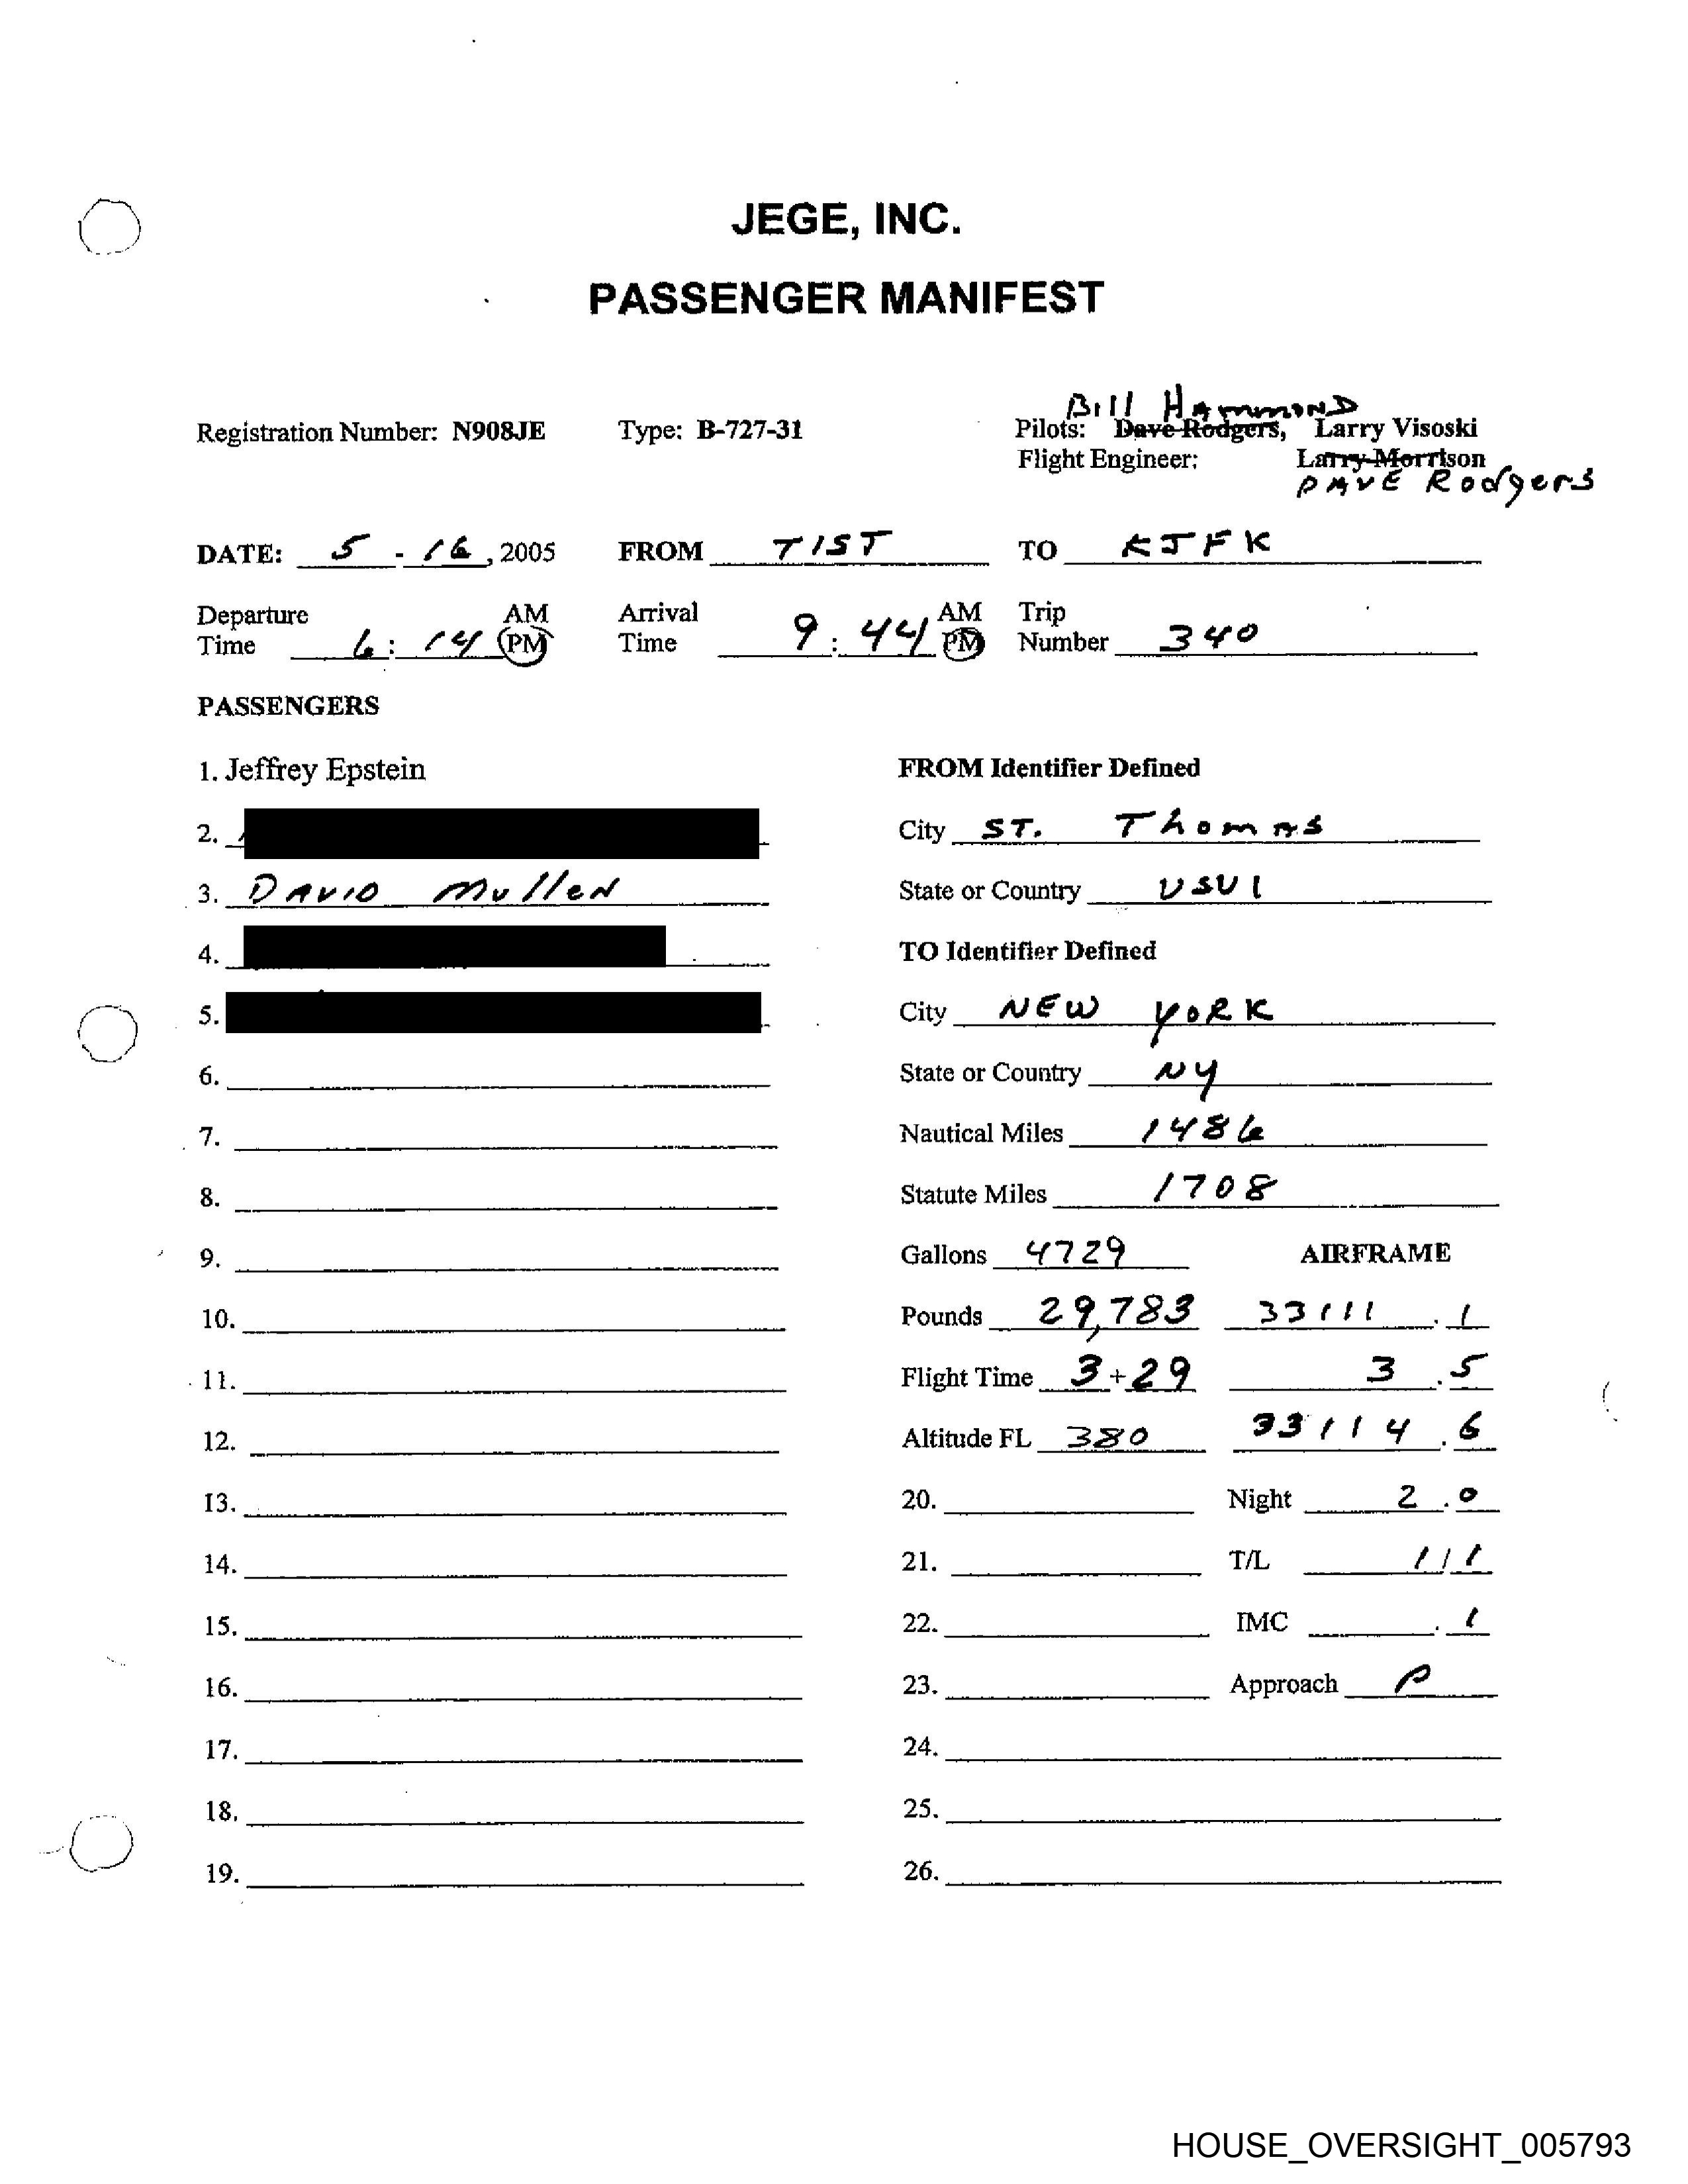 JEGE, INC.
PASSENGER MANIFEST
Bill Hammond
Registration Number: N908JE Type: B-727-31 Pilots: Dave Rodgers, Larry Visoski
Flight Engineer: Larry Morrison
DAVE Rodgers
DATE: 5 - 16, 2005 FROM TIST TO KJFK
Departure AM Arrival AM Trip
Time 6:14 PM Time 9:44 PM Number 340
PASSENGERS
1. Jeffrey Epstein
2.
3. DAVID Mullen
4.
5.
6.
7.
8.
9.
10.
11.
12.
13.
14.
15.
16.
17.
18.
19.
FROM Identifier Defined
City ST. Thomas
State or Country USVI
TO Identifier Defined
City NEW YORK
State or Country NY
Nautical Miles 1486
Statute Miles 1708
Gallons 4729 AIRFRAME
Pounds 29,783 33111.1
Flight Time 3+29 3.5
Altitude FL 380 33114.6
20. Night 2.0
21. T/L 1/1
22. IMC .1
23. Approach P
24.
25.
26.
HOUSE_OVERSIGHT_005793